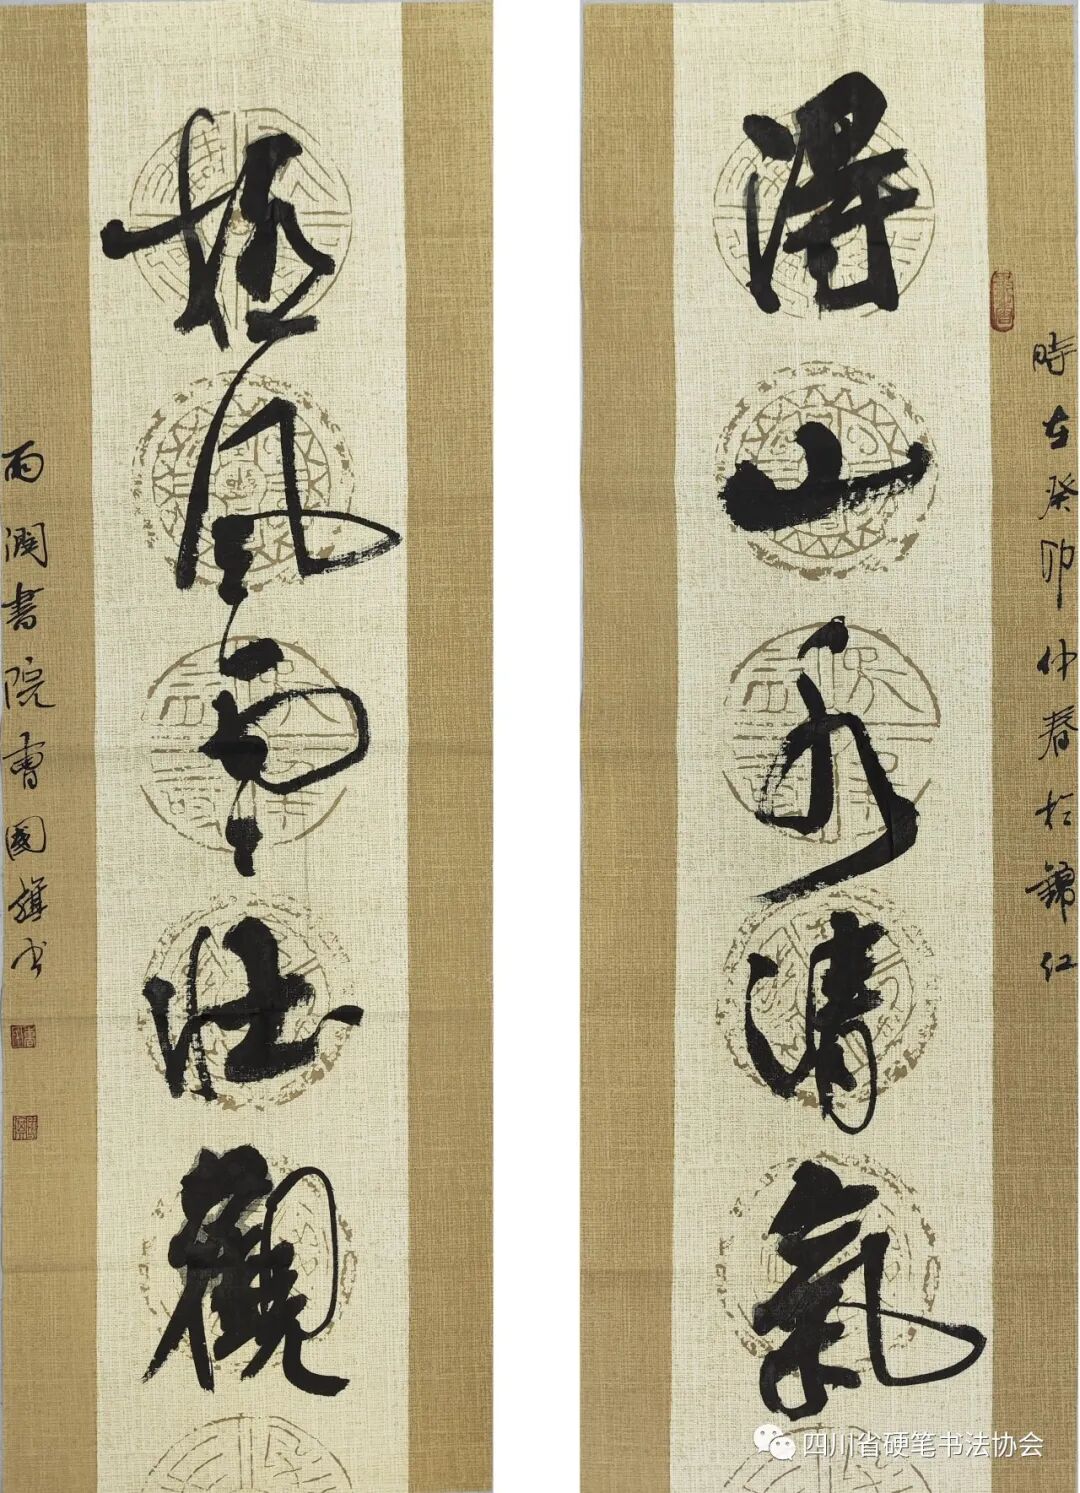 得山水清氣
時在癸卯仲春於錦江
極風雲壯觀
雨潤書院曹國書
四川省硬笔书法协会